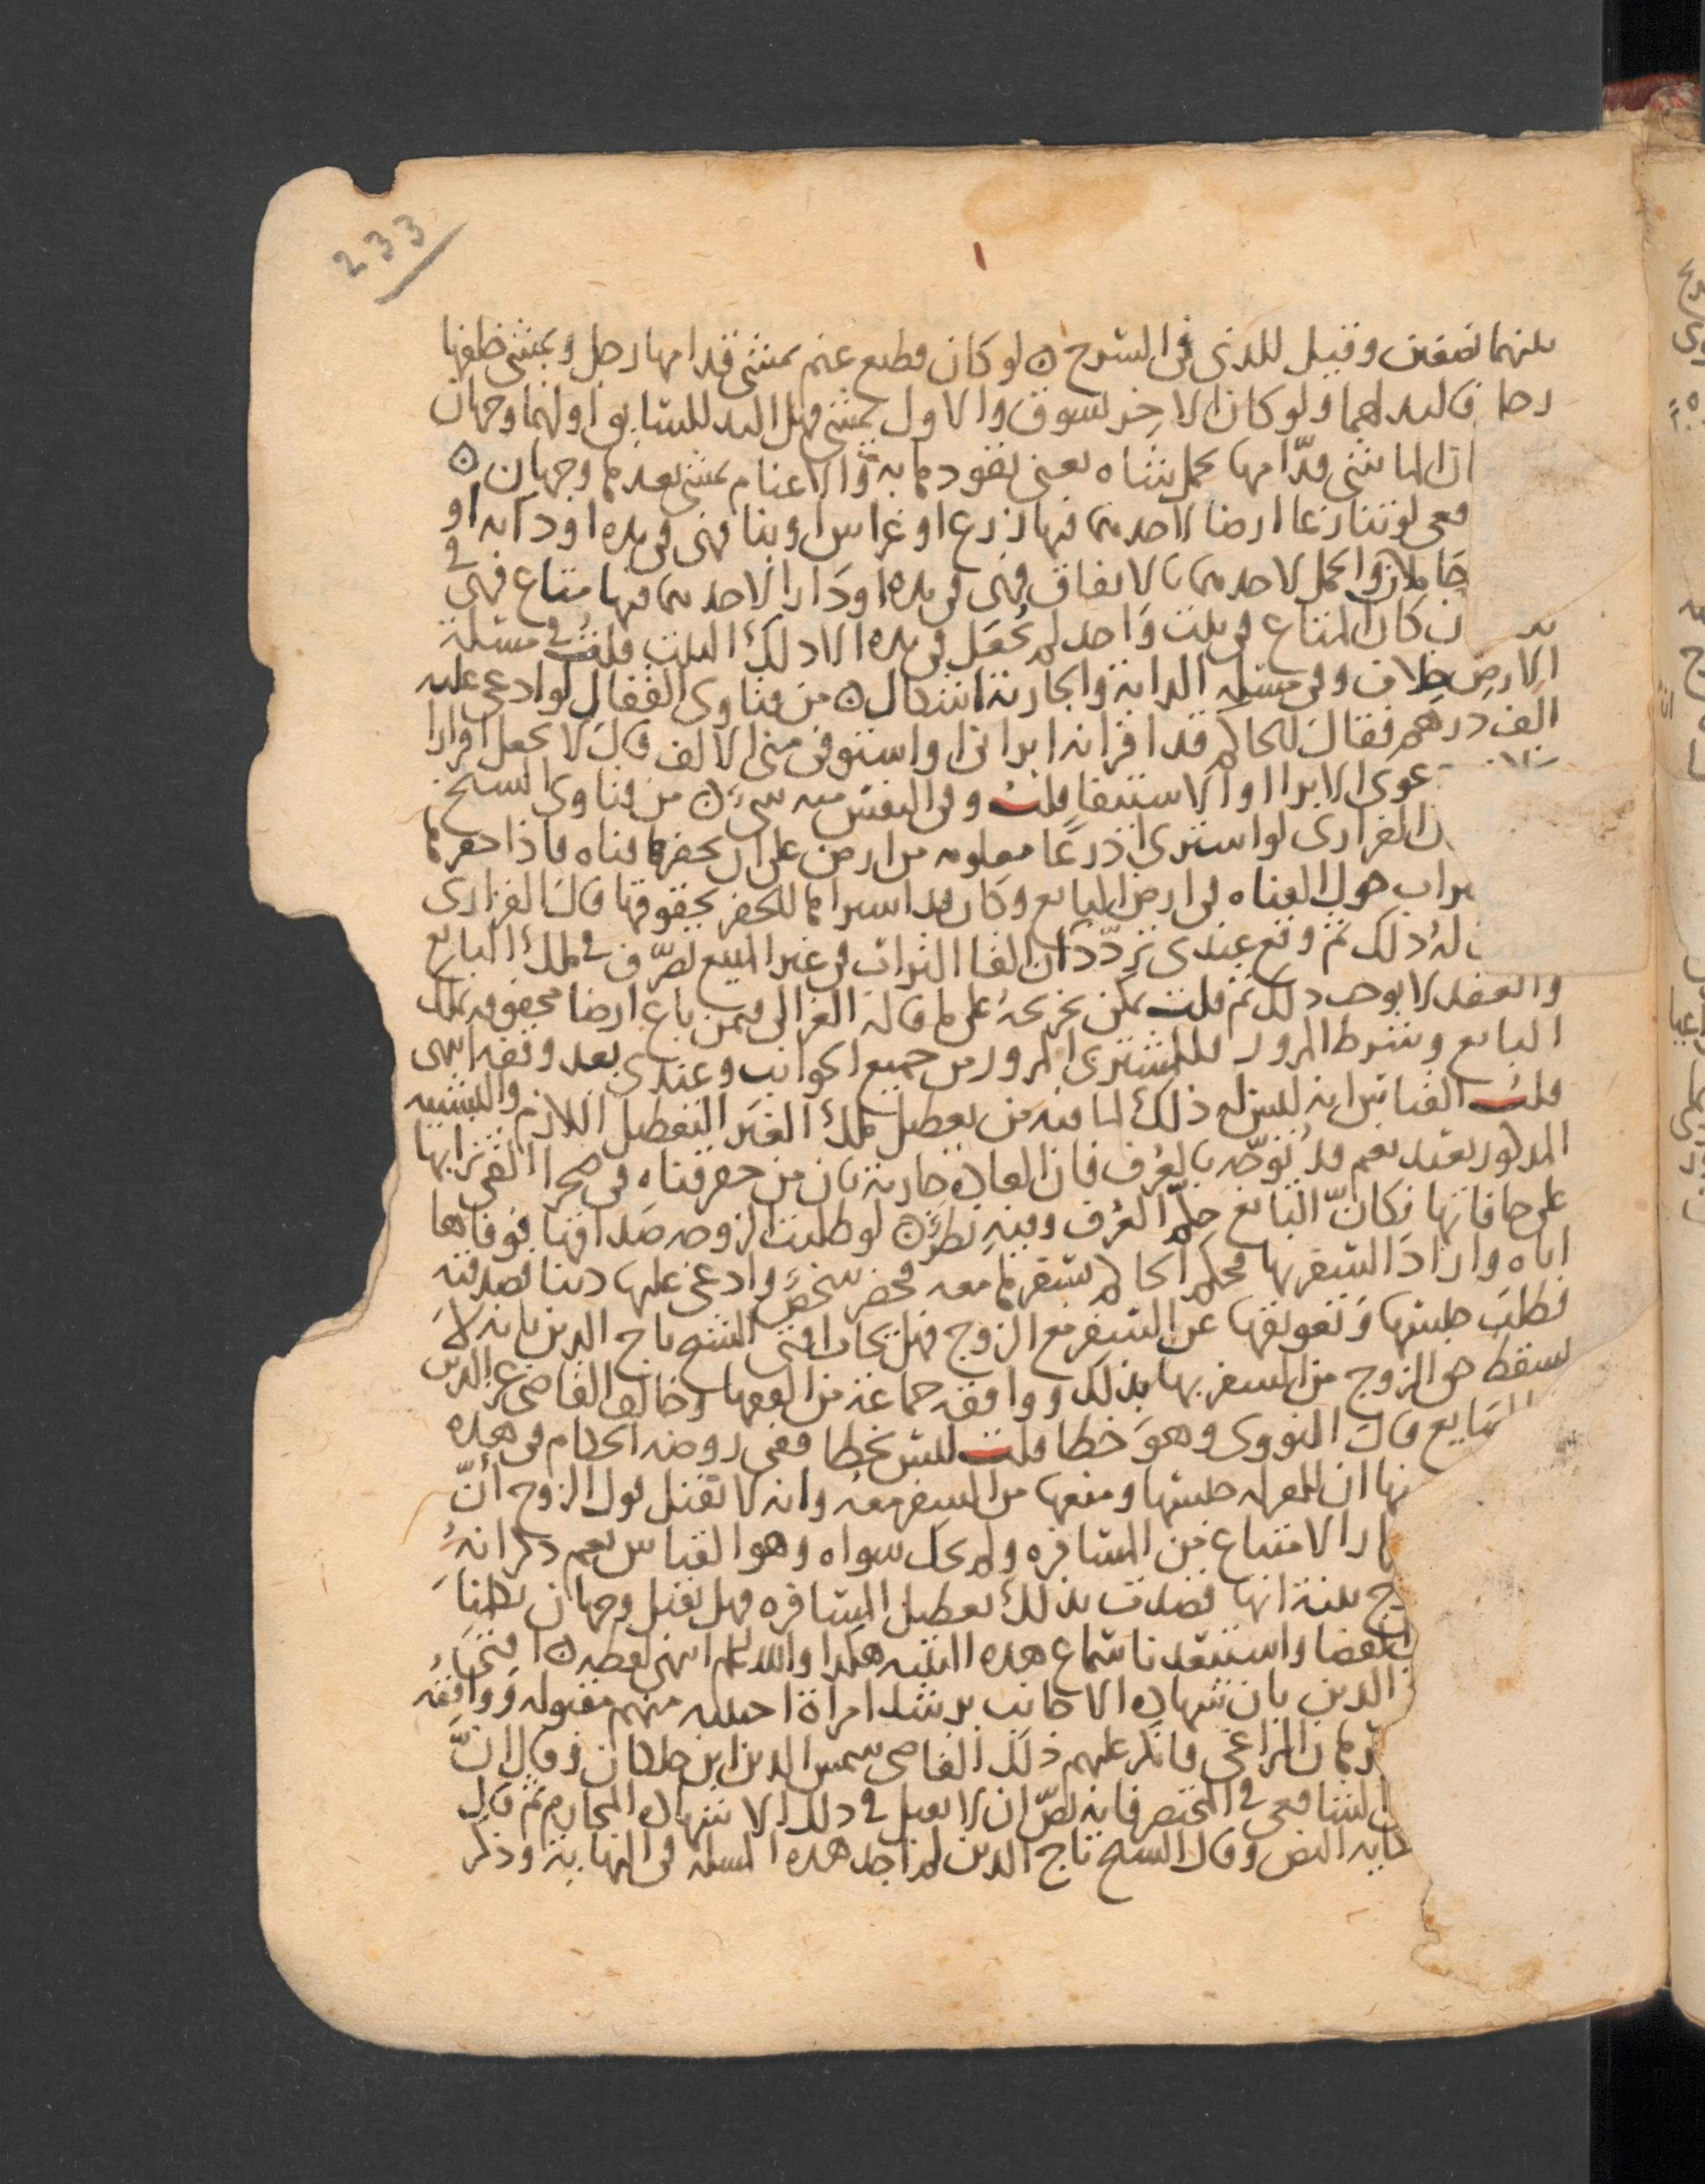 233
بينهما نصفين وقيل للذى فى السرج ۞ لو كان قطيع غنم يمشى قدامها رجل ويمشى خلفها
رجل فاليد لهما ولو كان الاخر يسوق والاول يمشى فهل اليد للسايق او لهما وجهان
ان الماشى قدّامها يحمل شاه يعنى يقودها به والاغنام يمشى بعدها وجهان ۞
فعى لو تنازعا ارضا لاحدهما فيها زرع او غراس او بنا فهى فى يده او دابه او
حاملا والحمل لاحدهما بالاتفاق فهى فى يده او دارا لاحدهما فيها متاع فهى فى
يد كان المتاع فى بيت واحد لم تُجعَل فى يده الا ذلك البيت قلتُ فى مسئلة
الارض خلاف وفى مسئله الدابة والجارية اشكال ۞ من فتاوى القفال لو ادعى عليه
الف درهم فقال للحاكم قد اقر انه ابرانى او استوفى منى الالف قال لا يجعل اقرارا
دعوى الابرا او الاستيفا قلت وفى النفس منه شىء ۞ من فتاوى الشيخ
الفزارى لو اشترى اذرعًا معلومه من ارض على ان يحفرها قناه فاذا حفرها
تراب حول القناه فى ارض البايع وكان قد اشتراها للحفر بحقوقها قال الفزارى
لهُ ذلك ثم وقع عندى تردّد ان القا التراب فى غير المبيع تصرّف فى ملك البايع
والعقد لا يوجب ذلك ثم قلت يمكن تخريجهُ على ما قاله الغزالى فيمن باع ارضا محفوفه بملك
البايع وشرط المرور فللمشترى المرور من جميع الجوانب وعندى بعد وقفه انتهى
قلت القياس انه ليس له ذلك لما فيه من تعطيل ملك الغير التعطيل اللازم والتشبيه
المذكور بعيد نعم قد يُوَجّه بالعُرف فان العاده جارية بان من حفر قناه فى صحرا القى ترابها
على حافاتها فكانّ البايع حكّم العُرف وفيهِ نظرٌ ۞ لو طلبت الزوجه صداقها فوفاها
اياه واراد السفر بها فحكم الحاكم بسفرها معه فحضر شخصٌ وادعى عليها دينا فصدقته
فطلبَ حبسها وتعويقها عن السفر مع الزوج فهل يجاب افتى الشيخ تاج الدين بانه لا
يسقط حق الزوج من السفر بها بذلك ووافقه جماعة من الفقها وخالف القاضى عز الدين
الصايغ قال النووى وهوَ خطا قلت ليس بخطا ففى روضه الحكام فى هذه
ان للمقر له حبسها ومنعها من السفر معه وانه لا تقبل قول الزوج أنّ
الامتناع من المسافره ولم يحك سواه وهو القياس نعم ذكر انهُ
بينة انها قصدت بذلك تعطيل المسافره فهل تقبل وجهان
واستبعدنا سماع هذه البينه هكذا والله اعلم انتهى لفظه ۞ افتى
الدين بان شهاده الاجانب برشد امراة اجنبيه منهم مقبوله ووافقه
المراغى فانكر عليهم ذلك القاضى شمس الدين ابن خلكان وقال انَّ
الشافعى فى المختصر فانه نصّ ان لا يقبل فى ذلك الا شهاده المحارم ثم قال
النص وقال الشيخ تاج الدين لم اجد هذه المسله فى النهاية وذكر